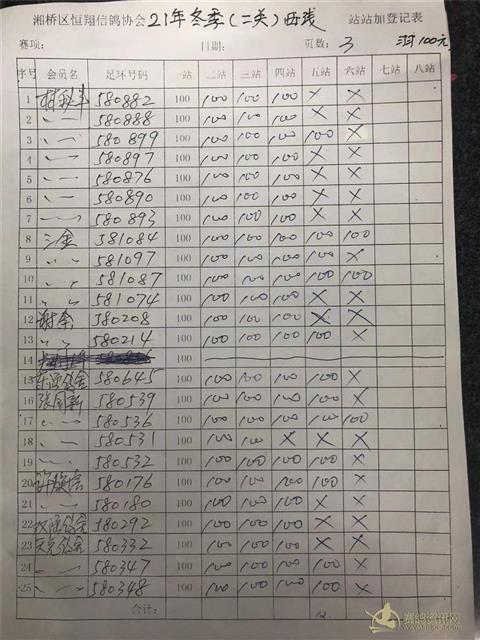 湘桥区恒翔信鸽协会 21年冬季(二关)西线 站站加登记表
赛项: 日期: 页数: 3 100元
序号 会员名 足环号码 一站 二站 三站 四站 五站 六站 七站 八站
1 580882 100 100 100 100 X X
2 580888 100 100 100 100 X X
3 580899 100 100 100 100 100 X
4 580897 100 100 100 100 X X
5 580876 100 100 100 100 X X
6 580890 100 100 100 100 X X
7 580893 100 100 100 100 X X
8 三金 581084 100 100 100 100 100 100
9 581097 100 100 100 100 100 X
10 581087 100 100 100 100 100 100
11 581074 100 100 100 100 X X
12 谢余 580208 100 100 100 100 X X
13 580214 100 100 100 100 100 X
14 100
15 580645 100 100 100 100 100 X
16 张国新 580539 100 100 100 100 100 X
17 580536 100 100 100 100 100 100
18 580531 100 100 100 X X X
19 580532 100 100 100 100 100 X
20 580176 100 100 100 100 100 X
21 580180 100 100 100 100 X X
22 580292 100 100 100 100 X X
23 580332 100 100 100 100 X X
24 580347 100 100 100 100 100 X
25 580348 100 100 100 100 100 X
合计:
赛鸽资讯网